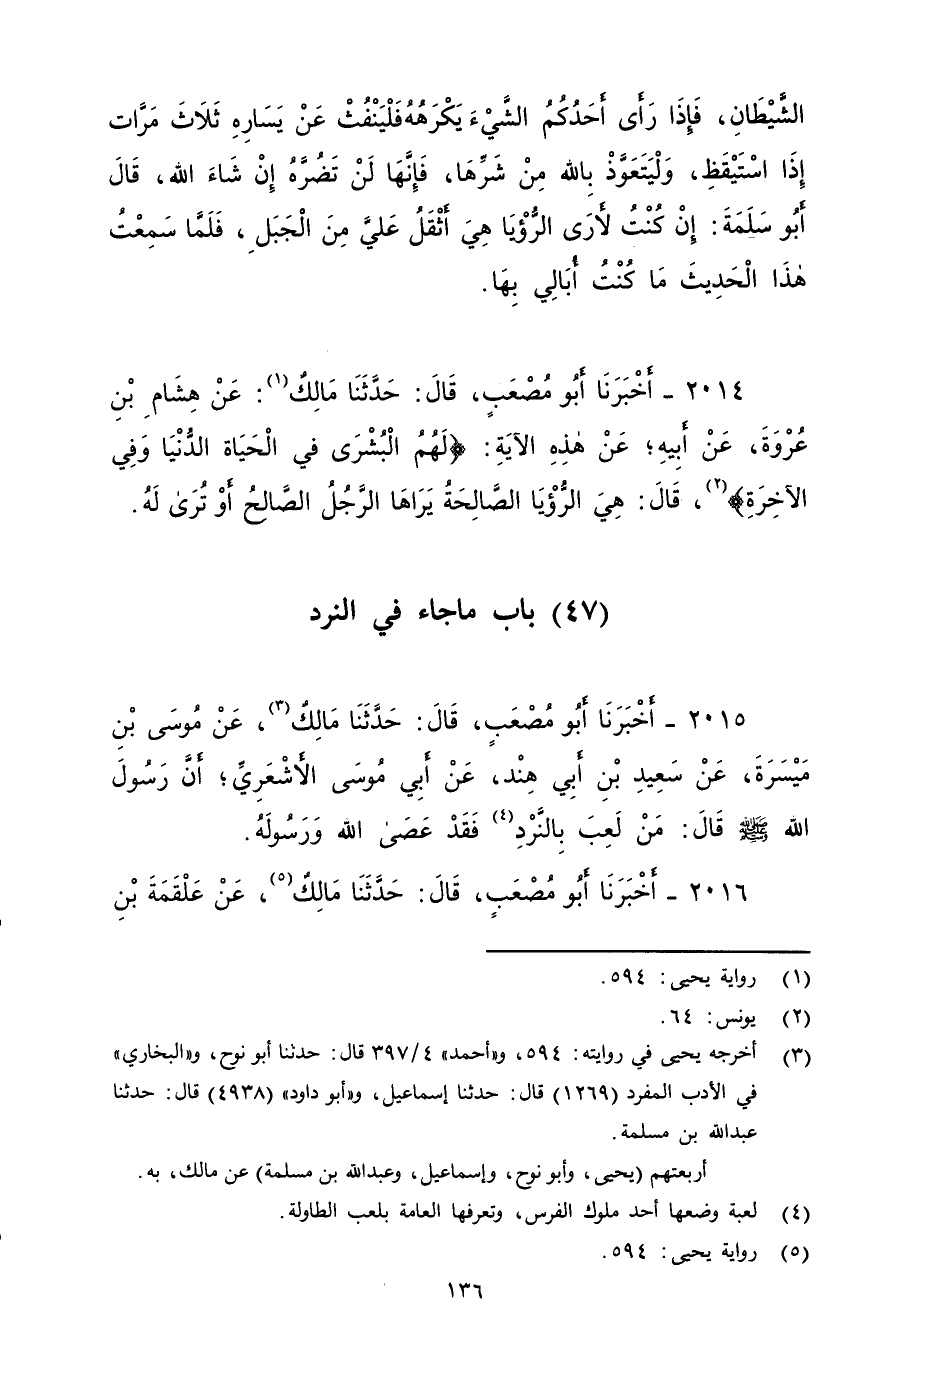 الشَّيْطَانِ، فَإِذَا رَأَى أَحَدُكُمُ الشَّيْءَ يَكْرَهُهُ فَلْيَنْفُثْ عَنْ يَسَارِهِ ثَلَاثَ مَرَّات
إِذَا اسْتَيْقَظَ، وَلْيَتَعَوَّذْ بِالله مِنْ شَرِّهَا، فَإِنَّهَا لَنْ تَضُرَّهُ إِنْ شَاءَ الله، قَالَ
أَبُو سَلَمَةَ: إِنْ كُنْتُ لَأَرَى الرُّؤْيَا هِيَ أَثْقَلُ عَلَيَّ مِنَ الْجَبَلِ، فَلَمَّا سَمِعْتُ
هٰذَا الْحَدِيثَ مَا كُنْتُ أُبَالِي بِهَا.
٢٠١٤ ـ أَخْبَرَنَا أَبُو مُصْعَبٍ، قَالَ: حَدَّثَنَا مَالِكٌ(١): عَنْ هِشَامِ بْنِ
عُرْوَةَ، عَنْ أَبِيهِ؛ عَنْ هٰذِهِ الآيَةِ: ﴿لَهُمُ الْبُشْرَى في الْحَيَاة الدُّنْيَا وَفِي
الآخِرَةِ﴾(٢)، قَالَ: هِيَ الرُّؤْيَا الصَّالِحَةُ يَرَاهَا الرَّجُلُ الصَّالِحُ أَوْ تُرَىٰ لَهُ.
(٤٧) باب ماجاء في النرد
٢٠١٥ ـ أَخْبَرَنَا أَبُو مُصْعَبٍ، قَالَ: حَدَّثَنَا مَالِكٌ(٣)، عَنْ مُوسَى بْنِ
مَيْسَرَةَ، عَنْ سَعِيدِ بْنِ أَبي هِنْد، عَنْ أَبي مُوسَى الأَشْعَرِيِّ؛ أَنَّ رَسُولَ
الله ﷺ قَالَ: مَنْ لَعِبَ بِالنَّرْدِ(٤) فَقَدْ عَصَىٰ الله وَرَسُولَهُ.
٢٠١٦ ـ أَخْبَرَنَا أَبُو مُصْعَبٍ، قَالَ: حَدَّثَنَا مَالِكٌ(٥)، عَنْ عَلْقَمَةَ بْنِ
(١) رواية يحيى: ٥٩٤.
(٢) يونس: ٦٤.
(٣) أخرجه يحيى في روايته: ٥٩٤، و«أحمد» ٣٩٧/٤ قال: حدثنا أبو نوح، و«البخاري»
في الأدب المفرد (١٢٦٩) قال: حدثنا إسماعيل، و«أبو داود» (٤٩٣٨) قال: حدثنا
عبدالله بن مسلمة.
أربعتهم (يحيى، وأبو نوح، وإسماعيل، وعبدالله بن مسلمة) عن مالك، به.
(٤) لعبة وضعها أحد ملوك الفرس، وتعرفها العامة بلعب الطاولة.
(٥) رواية يحيى: ٥٩٤.
١٣٦